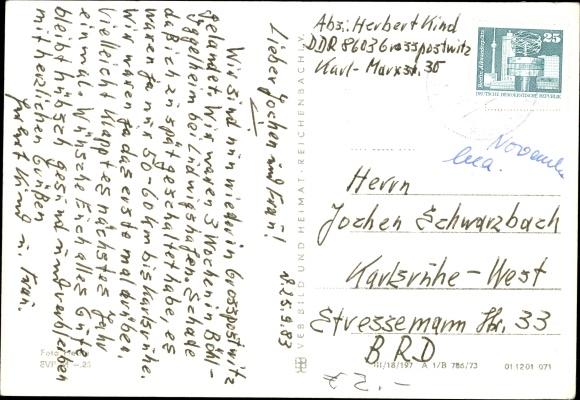 Abs.: Herbert Kind
DDR 8603 Grosspostwitz
Karl-Marxst. 30
25
DEUTSCHE DEMOKRATISCHE REPUBLIK
November
Herrn
Jochen Schwarzbach
Karlsruhe-West
Stressemann Str. 33
BRD
d. 25.9.83
Lieber Jochen und Frau!
Wir sind nun wieder in Grosspostwitz
gelandet. Wir waren 3 Wochen in Böhl-
Iggelheim bei Ludwigshafen. Schade
daß ich zu spät geschaltet habe, es
waren ja nur 50-60 km bis Karlsruhe.
Wir waren ja das erste mal drüben.
Vielleicht klappt es nächstes Jahr
einmal. Wünsche Euch alles Gute
bleibt hübsch gesund und verbleiben
mit herzlichen Grüßen
Herbert Kind u. Frau.
VEB BILD UND HEIMAT · REICHENBACH I. V.
III/18/197 A 1/B 786/73
01 12 01 071